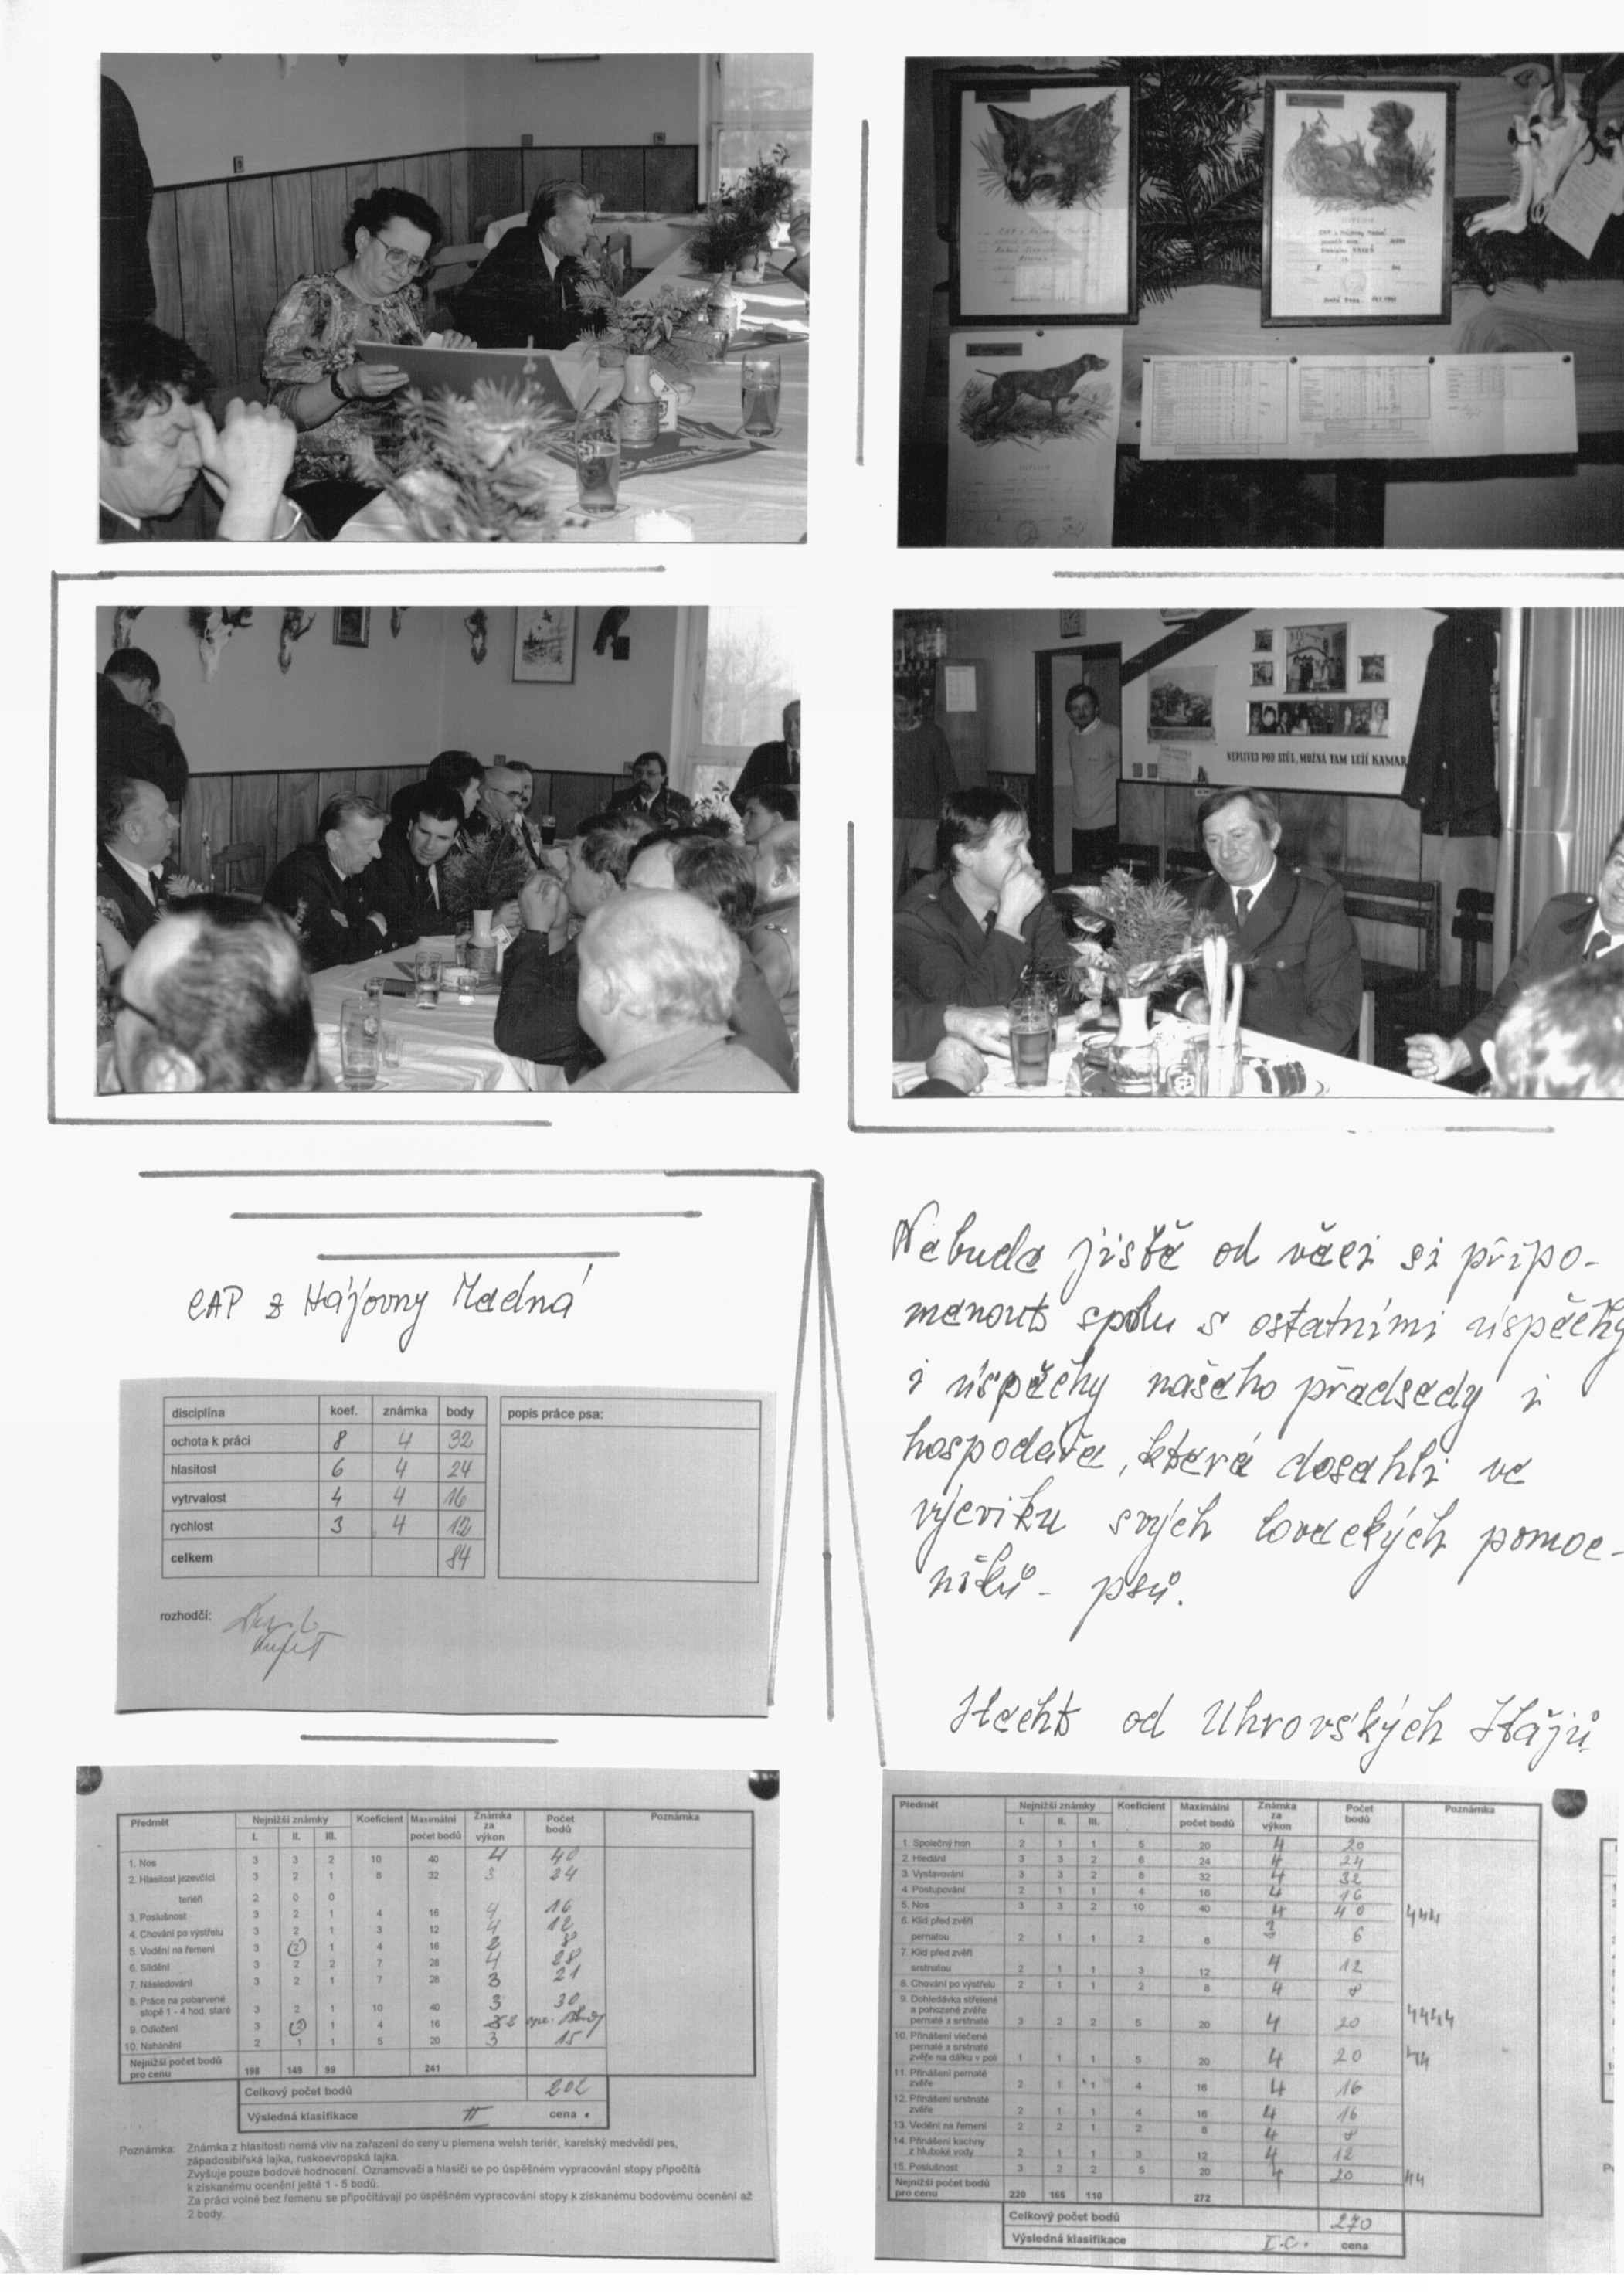 DIPLOM
DIPLOM
NEPLIVEJ POD STŮL, MOŽNÁ TAM LEŽÍ KAMAR
CAP z Hájovny Madná
disciplína koef. známka body
ochota k práci 8 4 32
hlasitost 6 4 24
vytrvalost 4 4 16
rychlost 3 4 12
celkem 84
popis práce psa:
rozhodčí:
Nebude jistě od věci si připo-
menout spolu s ostatními úspěchy
i úspěchy našeho předsedy i
hospodáře, které dosáhli ve
výcviku svých loveckých pomoc-
níků - psů.
Hecht od Uhrovských Hájů
Předmět Nejnižší známky Koeficient Maximální počet bodů Známka za výkon Počet bodů Poznámka
I. II. III.
1. Nos 3 3 2 10 40 4 40
2. Hlasitost jezevčíci 3 2 1 8 32 3 24
teriéři 2 0 0
3. Poslušnost 3 2 1 4 16 4 16
4. Chování po výstřelu 3 2 1 3 12 4 12
5. Vodění na řemeni 3 2 1 4 16 2 8
6. Slídění 3 2 2 7 28 4 28
7. Následování 3 2 1 7 28 3 21
8. Práce na pobarvené
stopě 1 - 4 hod. staré 3 2 1 10 40 3 30
9. Odložení 3 2 1 4 16
10. Nahánění 2 1 1 5 20 3 15
Nejnižší počet bodů
pro cenu 198 149 99 241
Celkový počet bodů 202
Výsledná klasifikace II cena.
Poznámka: Známka z hlasitosti nemá vliv na zařazení do ceny u plemena welsh teriér, karelský medvědí pes,
západosibiřská lajka, ruskoevropská lajka.
Zvyšuje pouze bodové hodnocení. Oznamovači a hlasiči se po úspěšném vypracování stopy připočítá
k získanému ocenění ještě 1 - 5 bodů.
Za práci volně bez řemenu se připočítávají po úspěšném vypracování stopy k získanému bodovému ocenění až
2 body.
Předmět Nejnižší známky Koeficient Maximální počet bodů Známka za výkon Počet bodů Poznámka
I. II. III.
1. Společný hon 2 1 1 5 20 4 20
2. Hledání 3 3 2 6 24 4 24
3. Vystavování 3 3 2 8 32 4 32
4. Postupování 2 1 1 4 16 4 16
5. Nos 3 3 2 10 40 4 40 444
6. Klid před zvěří
pernatou 2 1 1 2 8 3 6
7. Klid před zvěří
srstnatou 2 1 1 3 12 4 12
8. Chování po výstřelu 2 1 1 2 8 4 8
9. Dohledávka střelené
a pohozené zvěře
pernaté a srstnaté 3 2 2 5 20 4 20 4444
10. Přinášení vlečené
pernaté a srstnaté
zvěře na dálku v poli 1 1 1 5 20 4 20 44
11. Přinášení pernaté
zvěře 2 1 1 4 16 4 16
12. Přinášení srstnaté
zvěře 2 1 1 4 16 4 16
13. Vodění na řemeni 2 2 1 2 8 4 8
14. Přinášení kachny
z hluboké vody 2 1 1 3 12 4 12
15. Poslušnost 3 2 2 5 20 4 20 44
Nejnižší počet bodů
pro cenu 220 165 110 272
Celkový počet bodů 270
Výsledná klasifikace I.c. cena